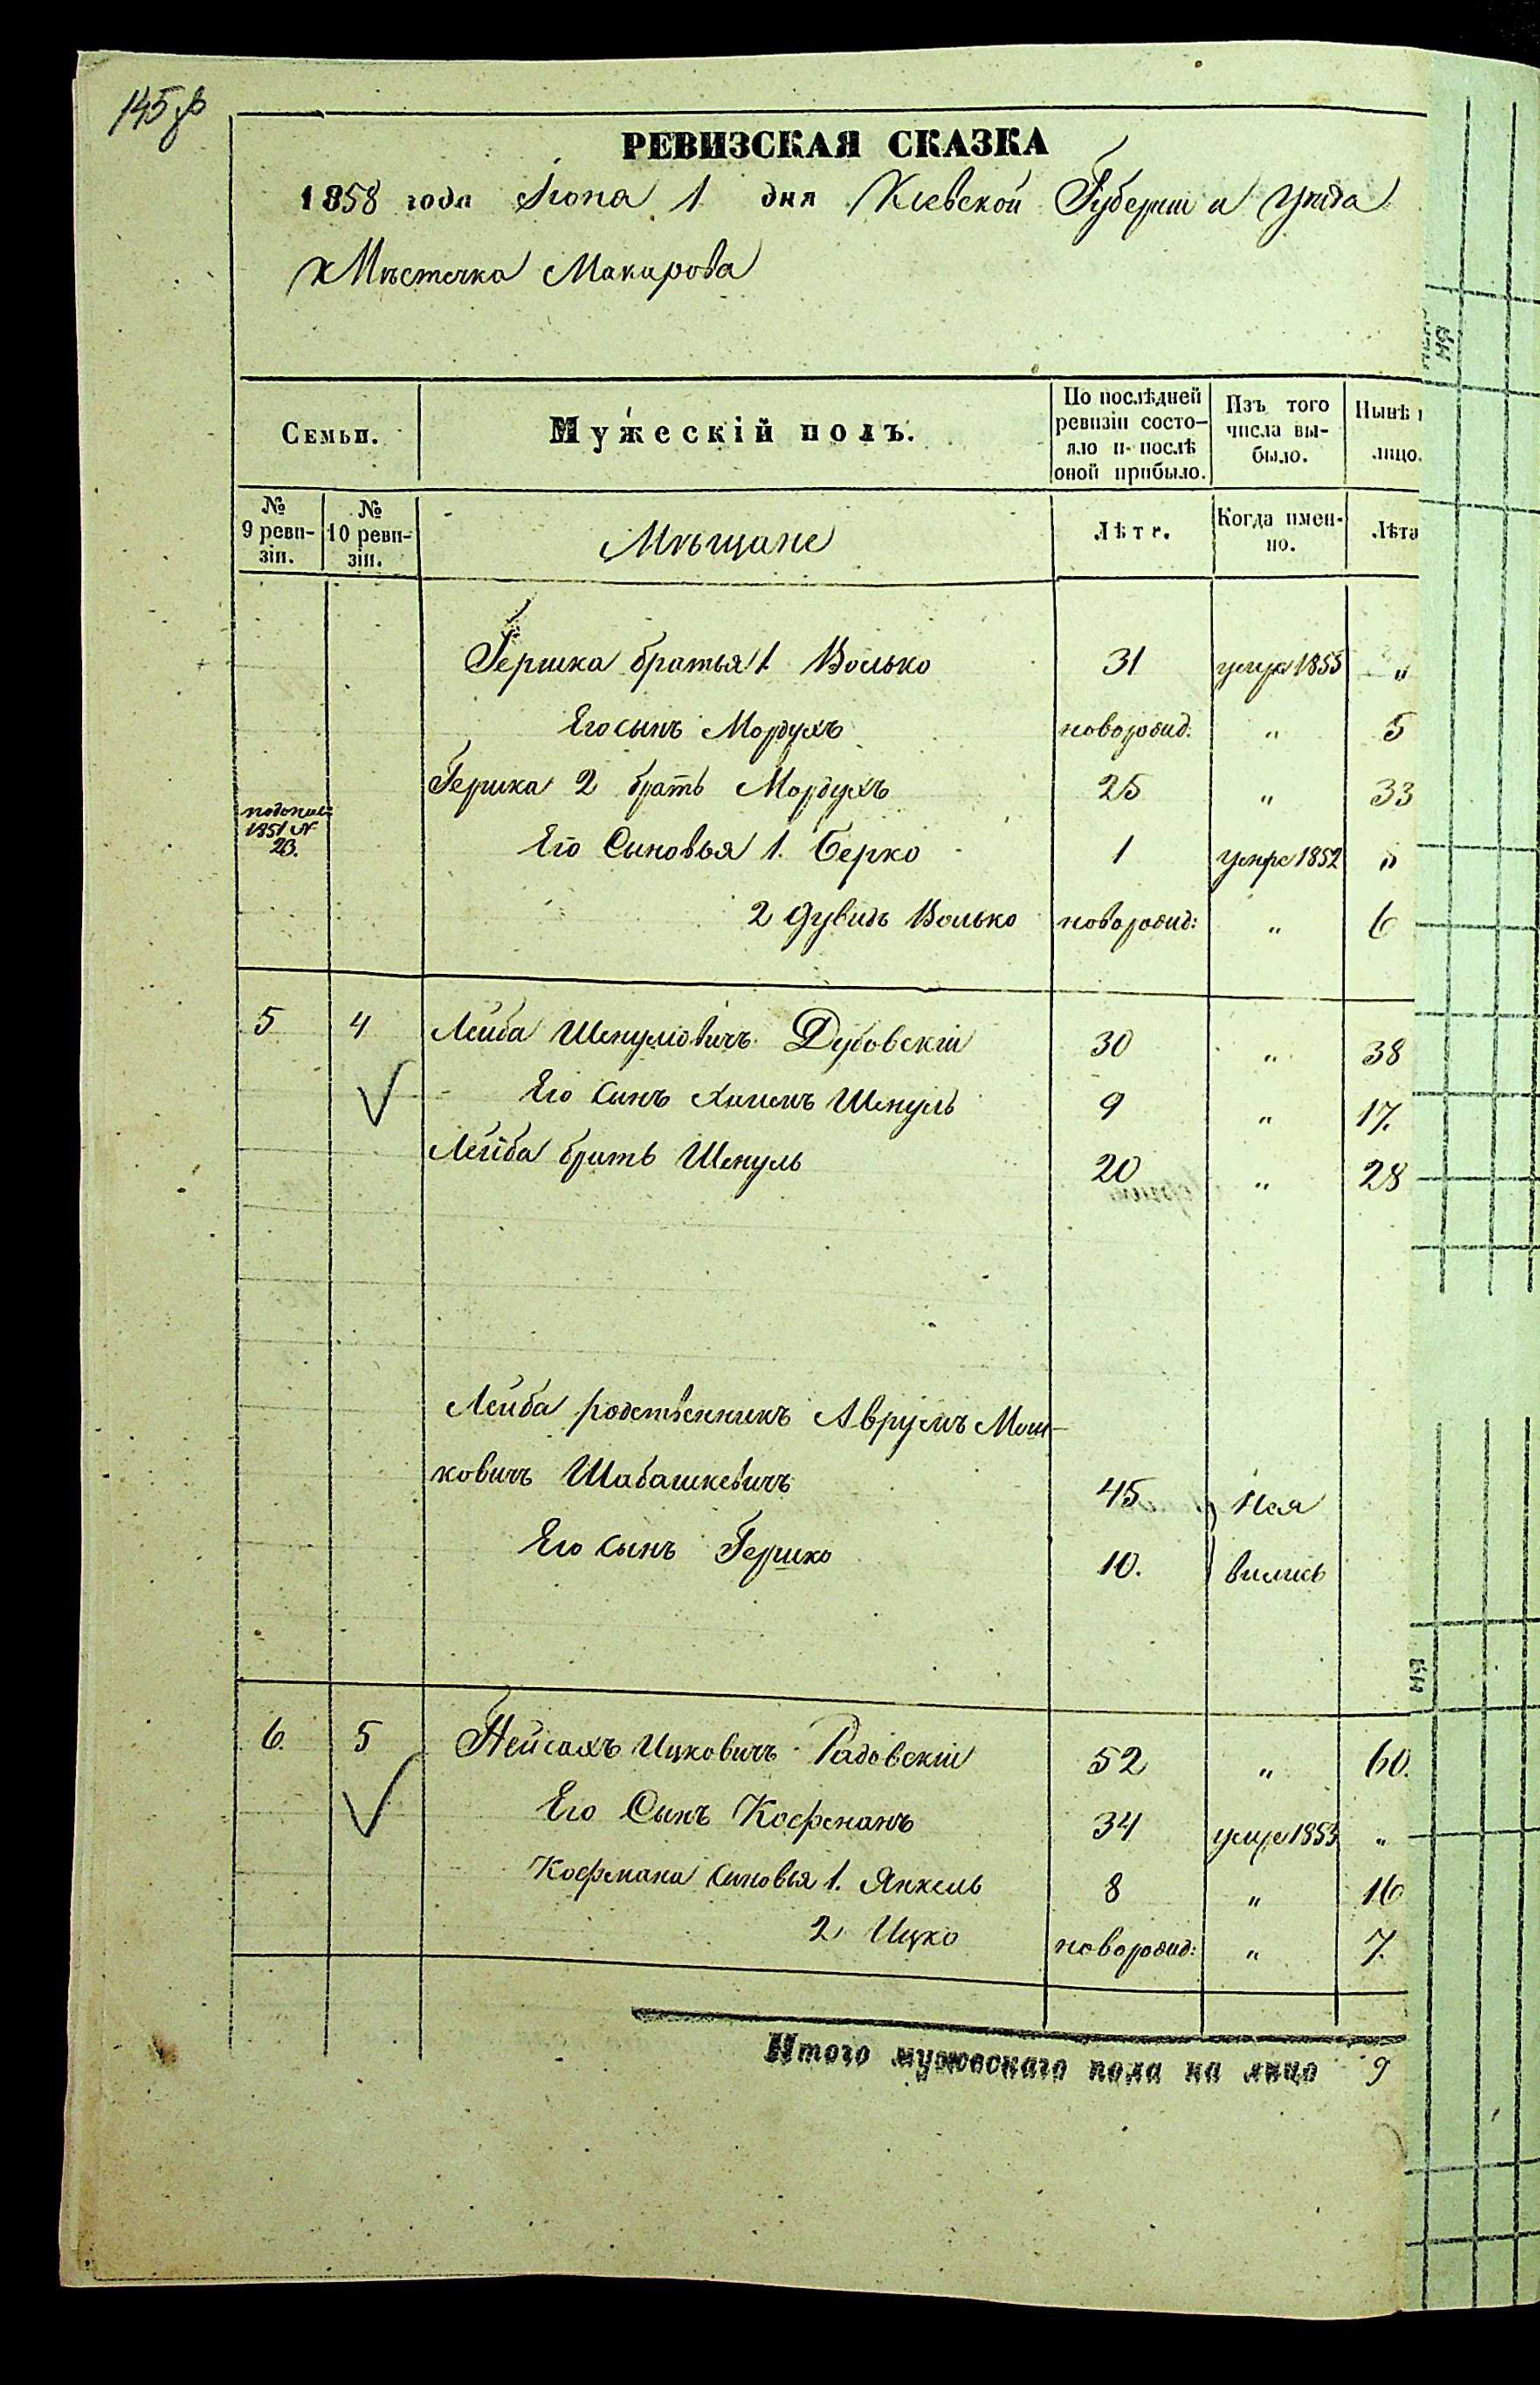 145
РЕВИЗСКАЯ СКАЗКА
1858 года Іюна 1 дня Кіевской Губерніи и уѣзда
Мѣстечка Макарова
Семьи. Мужескій полъ. По послѣдней ревизіи состо- яло и послѣ оной прибыло. Изъ того числа вы- было. Нынѣ лицо.
№ 9 реви- зіи. № 10 реви- зіи. Мѣщане Лѣта. Когда имен- но. Лѣта
Гершка братья 1 Волько 31 умре 1853 "
Его сынъ Мордухъ новорожд: " 5
Гершка 2 братъ Мордухъ 25 " 33
1851 №
23.
Его Сыновья 1. Берко 1 умре 1852 "
2 Дувидъ Волько новорожд: " 6
5 4 Лейба Шмулiовичъ Дубовскій 30 " 38
Его Сынъ Хаимъ Шмуль 9 " 17.
Лейба братъ Шмуль 20 " 28
Лейба родственникъ Аврумъ Мош-
ковичъ Шабашкевичъ 45 Ная
Его сынъ Гершко 10. вились
6. 5 Пейсахъ Ицковичъ Радовскій 52 " 60.
Его Сынъ Кофманъ 34 умре 1853 "
Кофмана сыновья 1. Янкель 8 " 16
2 Ицко новорожд: " 7.
Итого мужескаго пола на лицо 9